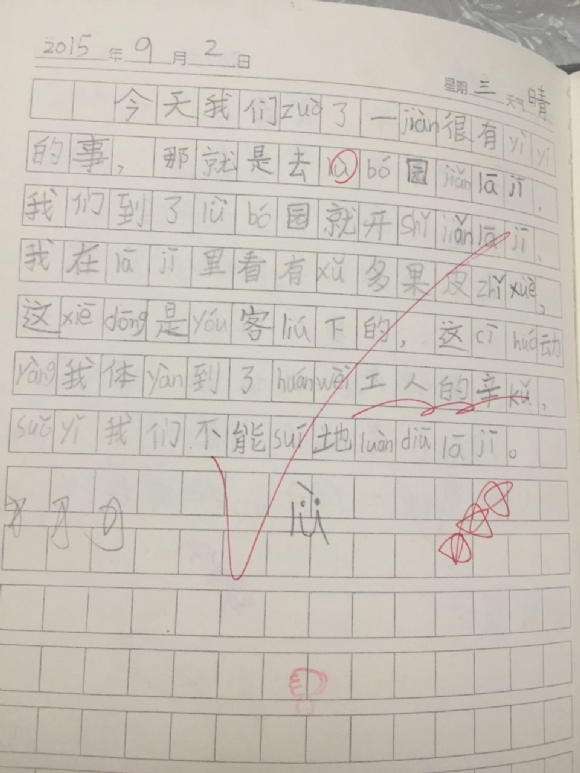 2015年9月2日
星期三天气晴
今天我们zuò了一jiàn很有yì yì
的事，那就是去lù bó园jiǎn lā jī，
我们到了lǜ bó园就开shǐ jiǎn lā jī，
我在lā jī里看有xǔ多果皮zhǐ xuè，
这xiē dōng是yóu客liú下的，这cì huó动
ràng我体yàn到了huán wèi工人的辛kǔ，
suǒ yǐ我们不能suí地luàn diū lā jī。
lǜ